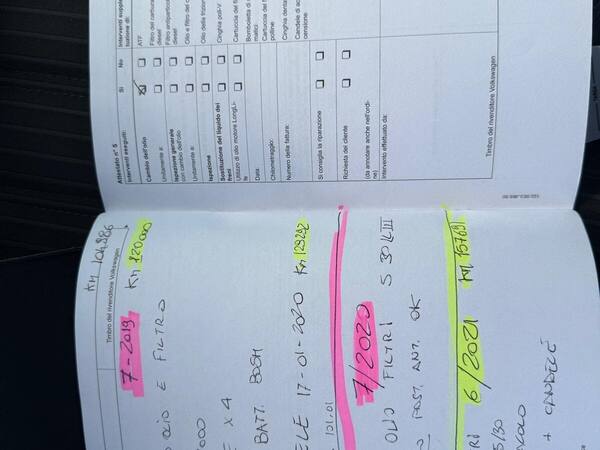 Attestato n° 5
Interventi eseguiti:
Sì
No
Interventi supple
Cambio dell'olio
ATF
Unitamente a:
Filtro del carbura
diesel
Ispezione generale
con cambio dell'olio
diesel
Unitamente a:
Olio e filtro del c
Ispezione
Olio della frizione
Sostituzione del liquido dei
freni
Cinghia poli-V
Utilizzo di olio motore LongLi-
fe
Cartuccia del fi
Data
Bomboletta di
Chilometraggio:
Cartuccia del f
polline
Numero della fattura:
Cinghia denta
Candele di ac
censione
Si consiglia la riparazione
Richiesta del cliente
(da annotare anche nell'ordi-
Intervento effettuato da:
Timbro del rivenditore Volkswagen
KM 104.986
Timbro del rivenditore Volkswagen
7-2019 KM 120000
OLIO E FILTRO
000
E X 4
BATT. BOSH
ELE 17-01-2020 KM 129292
101.01
7/2020
OLIO FILTRI 5 30 L III
POST. ANT. OK
6/2021 KM 157691
TRI
5/30
COLO
+ CANDELE